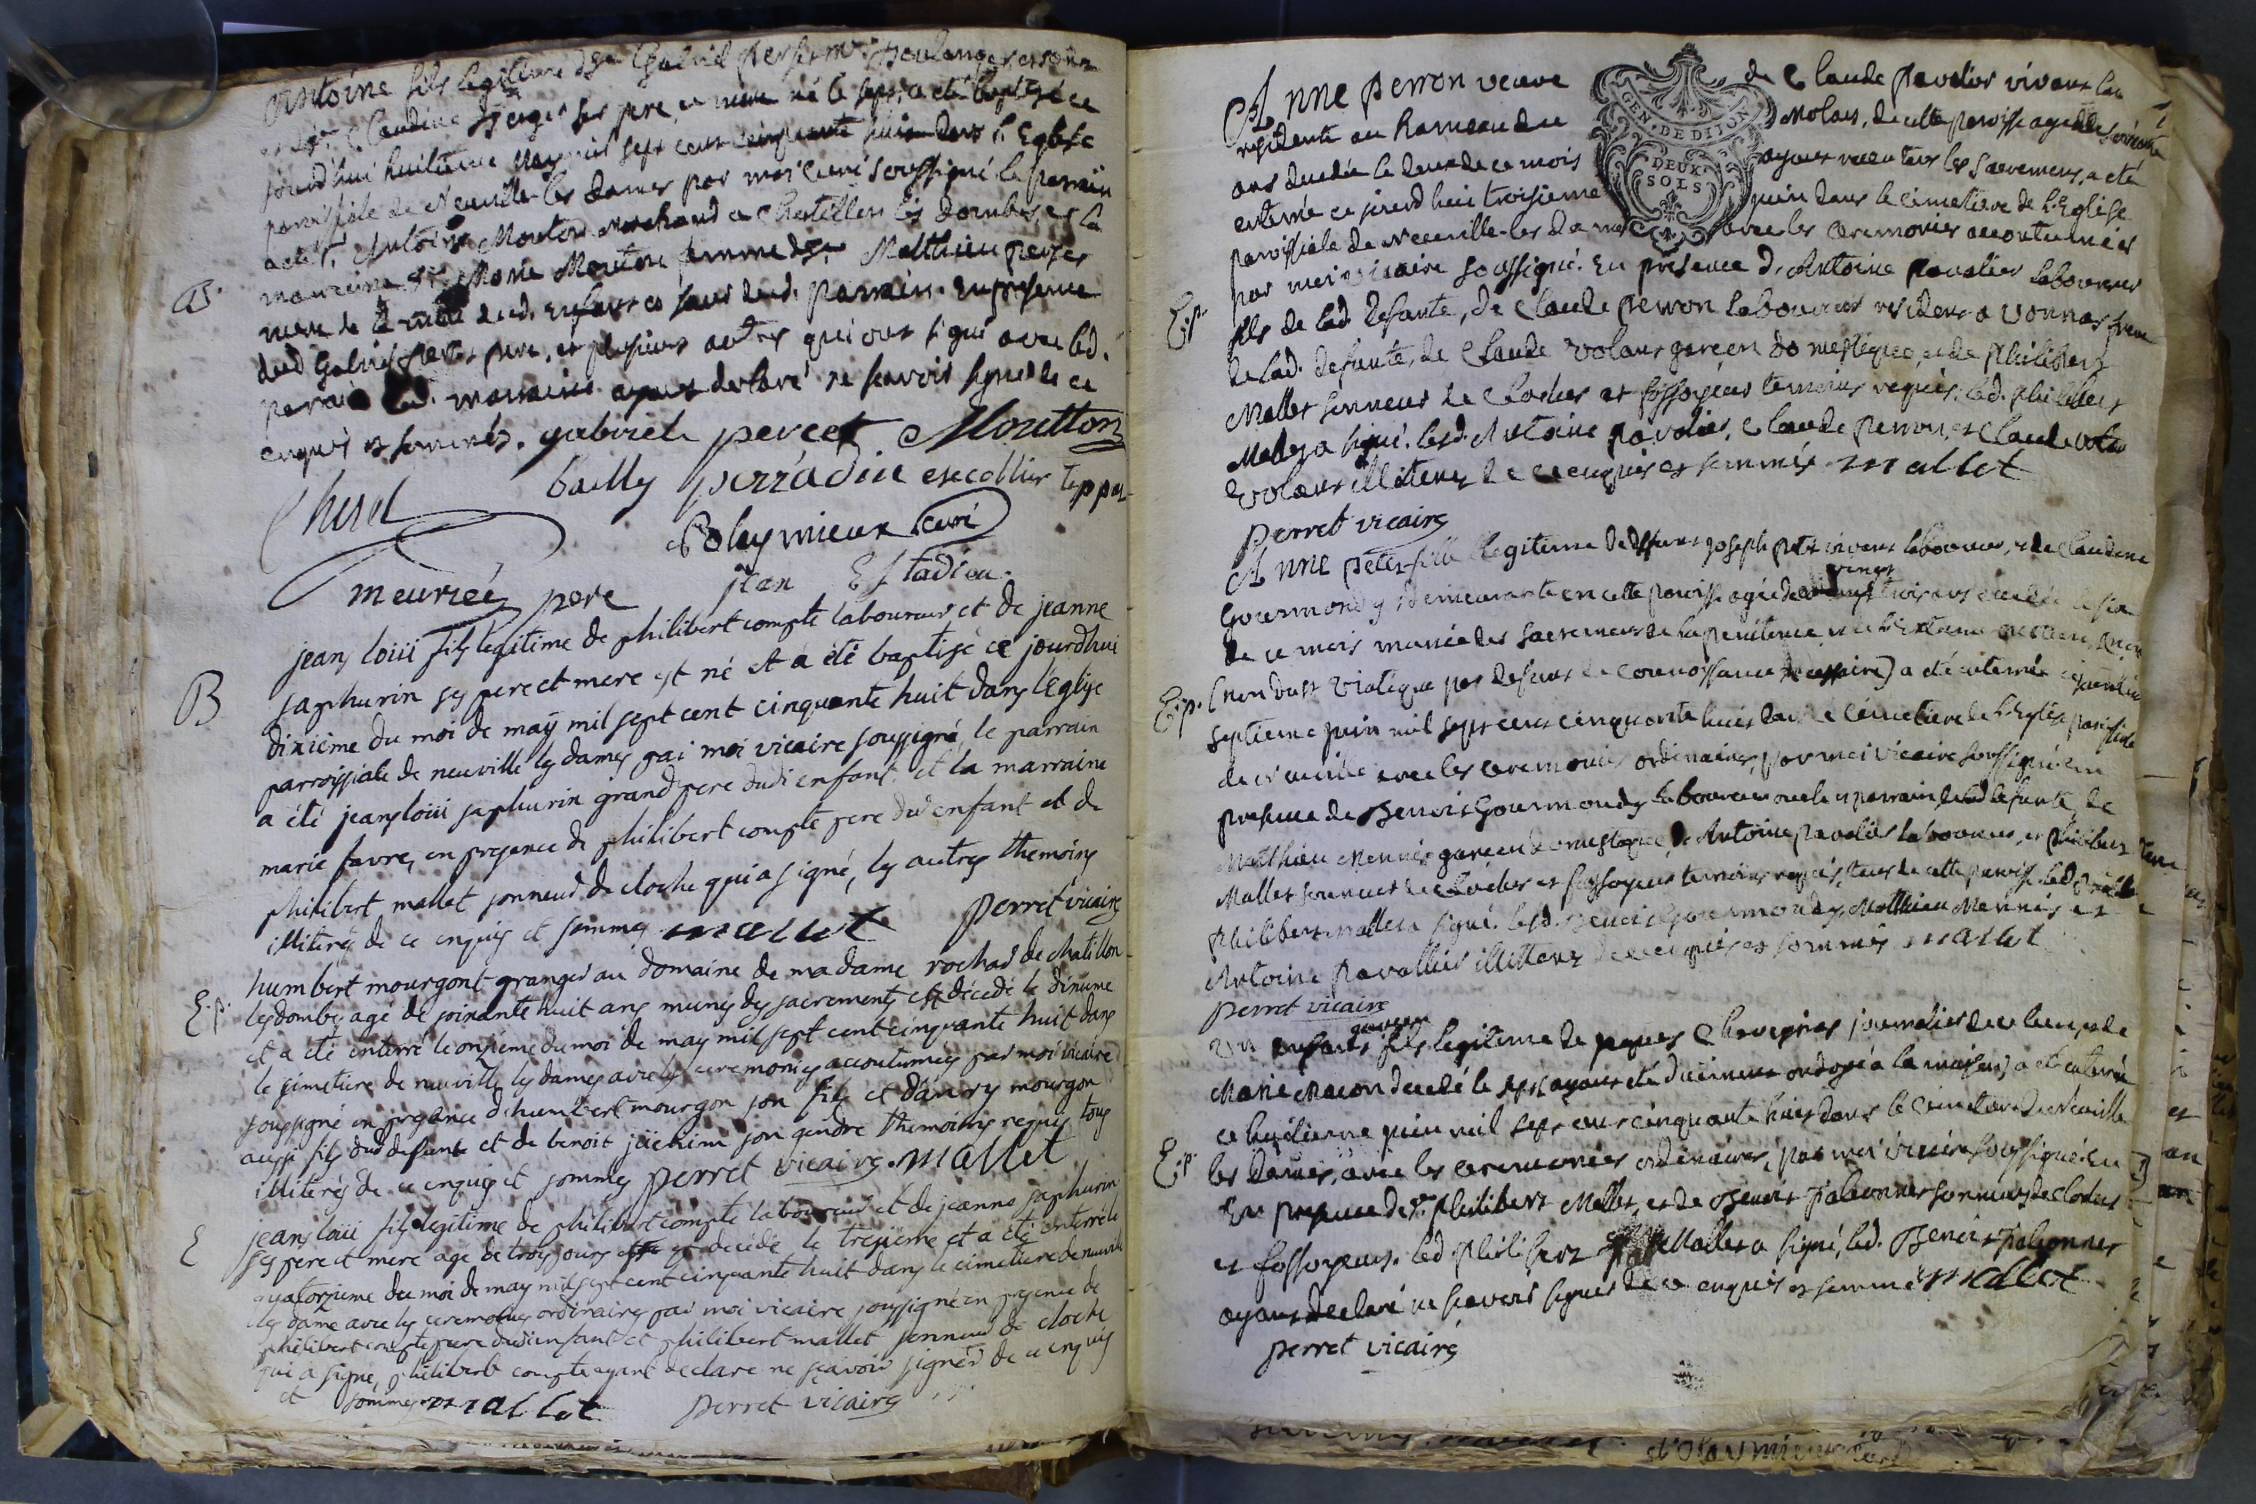 Antoine fils legitime de Sr Gabriel Boulanger
Claudine ses pere et mere né le sept, a eté baptisé ce
jourd'hui huitieme May mil sept cent cinquante huit dans l'Eglise
paroissiale de Neuville les dames par moi Curé soussigné le parrain
a eté Sr. Antoine Mouton Marchand a Chatillon les dombes et la
marraine Marie Mouton femme de Sr Matthieu
B. mere de dud. enfant et dud. parrain. En presence
dud Gabriel pere, et plusieurs autres qui ont signé avec led.
parrain lad. marraine ayant declaré ne scavoir signer de ce
enquis et sommés. gabriel percet Moutton
Cheret bailly perradin escollier
Poleymieux Curé
meurieé pere jean Estadieu.
jean loüi fils legitime de philibert compte laboureur et de jeanne
B saphurin ses pere et mere est né et a été baptisé ce jourdhui
dixième du moi de maÿ mil sept cent cinquante huit dans l'Eglise
parroissiale de neuville les dames par moi vicaire soussigné, le parrain
a été jean loüi saphurin grand pere dud enfant et la marraine
marie favre, en presance de philibert compte pere dud enfant et de
philibert mallet sonneur de cloche qui a signé, les autres themoins
illiterés de ce enquis et sommes mallet perret vicaire
humbert mourgont granger au domaine de madame rochas de chatillon
E.p. les dombe agé de soixante huit ans munis des sacrements est décedé le dixieme
et a été enterré le onzieme du moi de may mil sept cent cinquante huit dans
le simetiere de neuville les dames avec les ceremonies accoutumées par moi vicaire
soussigné en presance d'humbert mourgon son fils et d'andry mourgon
aussi fils dud defunt et de benoit jüenin son gendre themoins requis tous
illiterés de ce enquis et sommes perret vicaire. mallet
E jean loüi fils legitime de philibert compte laboureur et de jeanne saphurin
ses pere et mere agé de trois jours est decédé le tresieme et a été enterré le
quatorzieme du moi de may mil sept cent cinquante huit dans le cimetiere de neuville
les dame avec les ceremonies ordinaires par moi vicaire soussigné en presence de
philibert compte pere dud enfant et philibert mallet sonneur de cloche
qui a signe, philibert compte ayant declaré ne sçavoir signer de ce enquis
et sommes mallet perret vicaire
GEN. DE DIJON
DEUX SOLS
Anne perron veuve de Claude pavolier vivant
residente au hameau des Molars, de cette paroisse agée de
ans decedée le deux de ce mois ayant receu tous les sacremens, a eté
enterrée ce jourd'hui troisieme juin dans le cimetiere de l'Eglise
paroissiale de Neuville-les dames avec les ceremonies accoutumées
E.p. par moi vicaire soussigné. En presence d'Antoine pavolier laboureur
fils de lad. defunte, de Claude perron laboureur residant a vonnas frere
de lad. defunte, de Claude volant garcon domestique, et de philibert
Mallet sonneur de Cloches et fossoyeur temoins requis. led. philibert
Mallet a signé. lesd. Antoine pavolier, Claude perron, et Claude
volant illitterez de ce enquis et sommés mallet
perret vicaire
Anne petet fille legitime de deffunt joseph petet vivant laboureur, et de Claudine
Gourmondy demeurante en cette paroisse agée de vingt trois ans decedée le six
de ce mois munie des sacremens de la penitence et de l'Extreme onction
E.p. (non du St Viatique par defaut de connoissance necessaire) a eté enterrée ce jourd'hui
septieme juin mil sept cent cinquante huit dans le Cimetiere de l'Eglise paroissiale
de Neuville avec les ceremonies ordinaires par moi vicaire soussigné. En
presence de Benoit Gourmondy laboureur oncle et parrain de lad defunte, de
Matthieu Mennier garcon domestique, d'Antoine pavolier laboureur, et philibert
Mallet sonneur de Cloches et fossoyeur temoins requis, tous de cette paroisse led
philibert mallet a signé. lesd. Benoit Gourmondy, Matthieu Mennier et
Antoine pavollier illitterez de ce enquis et sommés mallet
perret vicaire
garcon
un enfant fils legitime de jaques Chavagnier journalier de ce lieu et de
Marie Macon decedé le sept ayant eté duement ondoyé a la maison) a eté enterré
ce huitieme juin mil sept cent cinquante huit dans le Cimetiere de Neuville
E.p. les dames, avec les ceremonies ordinaires, par moi vicaire soussigné. En
En presence de Sr. Philibert Mallet, et de Benoit falconnet sonneurs de Cloches
et fossoyeurs. led philibert Mallet a signé, led. Benoit falconnet
ayant declaré ne scavoir signer de ce enquis et sommé mallet
perret vicaire